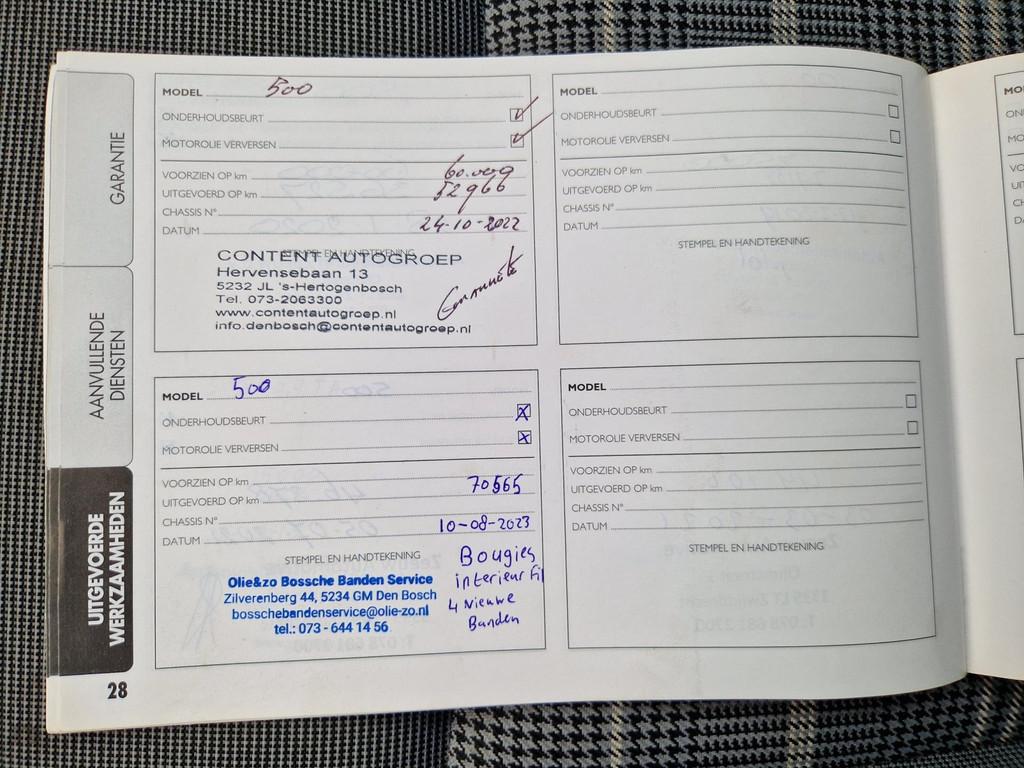 GARANTIE
AANVULLENDE
DIENSTEN
UITGEVOERDE
WERKZAAMHEDEN
28
MODEL 500
ONDERHOUDSBEURT
MOTOROLIE VERVERSEN
VOORZIEN OP km
UITGEVOERD OP km 52966
CHASSIS N°
DATUM 24-10-2022
STEMPEL EN HANDTEKENING
CONTENT AUTOGROEP
Hervensebaan 13
5232 JL 's-Hertogenbosch
Tel. 073-2063300
www.contentautogroep.nl
info.denbosch@contentautogroep.nl
MODEL 500
ONDERHOUDSBEURT
MOTOROLIE VERVERSEN
VOORZIEN OP km
UITGEVOERD OP km 70565
CHASSIS N°
DATUM 10-08-2023
STEMPEL EN HANDTEKENING
Olie&zo Bossche Banden Service
Zilverenberg 44, 5234 GM Den Bosch
bosschebandenservice@olie-zo.nl
tel.: 073 - 644 14 56
Bougies
interieur Fil
4 Nieuwe
Banden
MODEL
ONDERHOUDSBEURT
MOTOROLIE VERVERSEN
VOORZIEN OP km
UITGEVOERD OP km
CHASSIS N°
DATUM
STEMPEL EN HANDTEKENING
MODEL
ONDERHOUDSBEURT
MOTOROLIE VERVERSEN
VOORZIEN OP km
UITGEVOERD OP km
CHASSIS N°
DATUM
STEMPEL EN HANDTEKENING